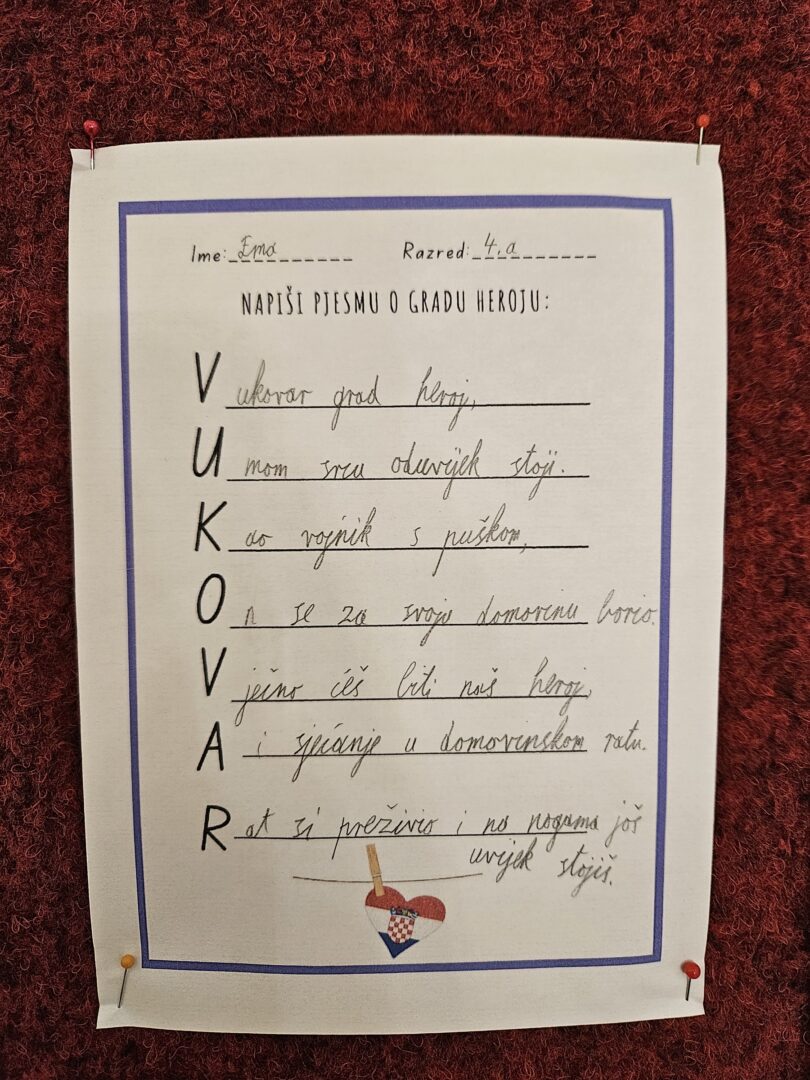 Ime: Ema Razred: 4.a
NAPIŠI PJESMU O GRADU HEROJU:
Vukovar grad heroj,
U mom srcu oduvijek stoji.
Kao vojnik s puškom,
On se za svoju domovinu borio.
Vječno ćeš biti naš heroj,
A i sjećanje u domovinskom ratu.
Rat si preživio i na nogama još
uvijek stojiš.